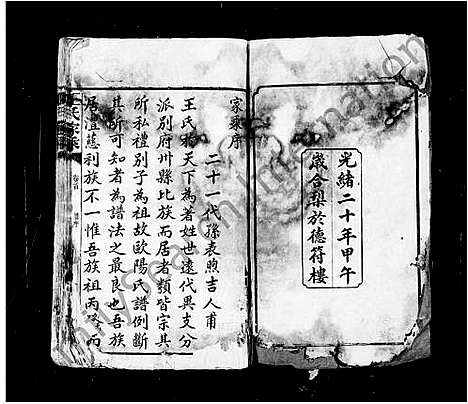 光緒二十年甲午
歲合梨於德符樓
家乘序
二十一代孫表煦吉人甫
王氏於天下為著姓世遠代異支分
派別府州縣比族而居者類皆宗其
所私禮別子為祖故歐陽氏譜例斷
其所可知者為譜法之最良也吾族
居澧慈利族不一惟吾族祖丙公而
氏家乘
卷首